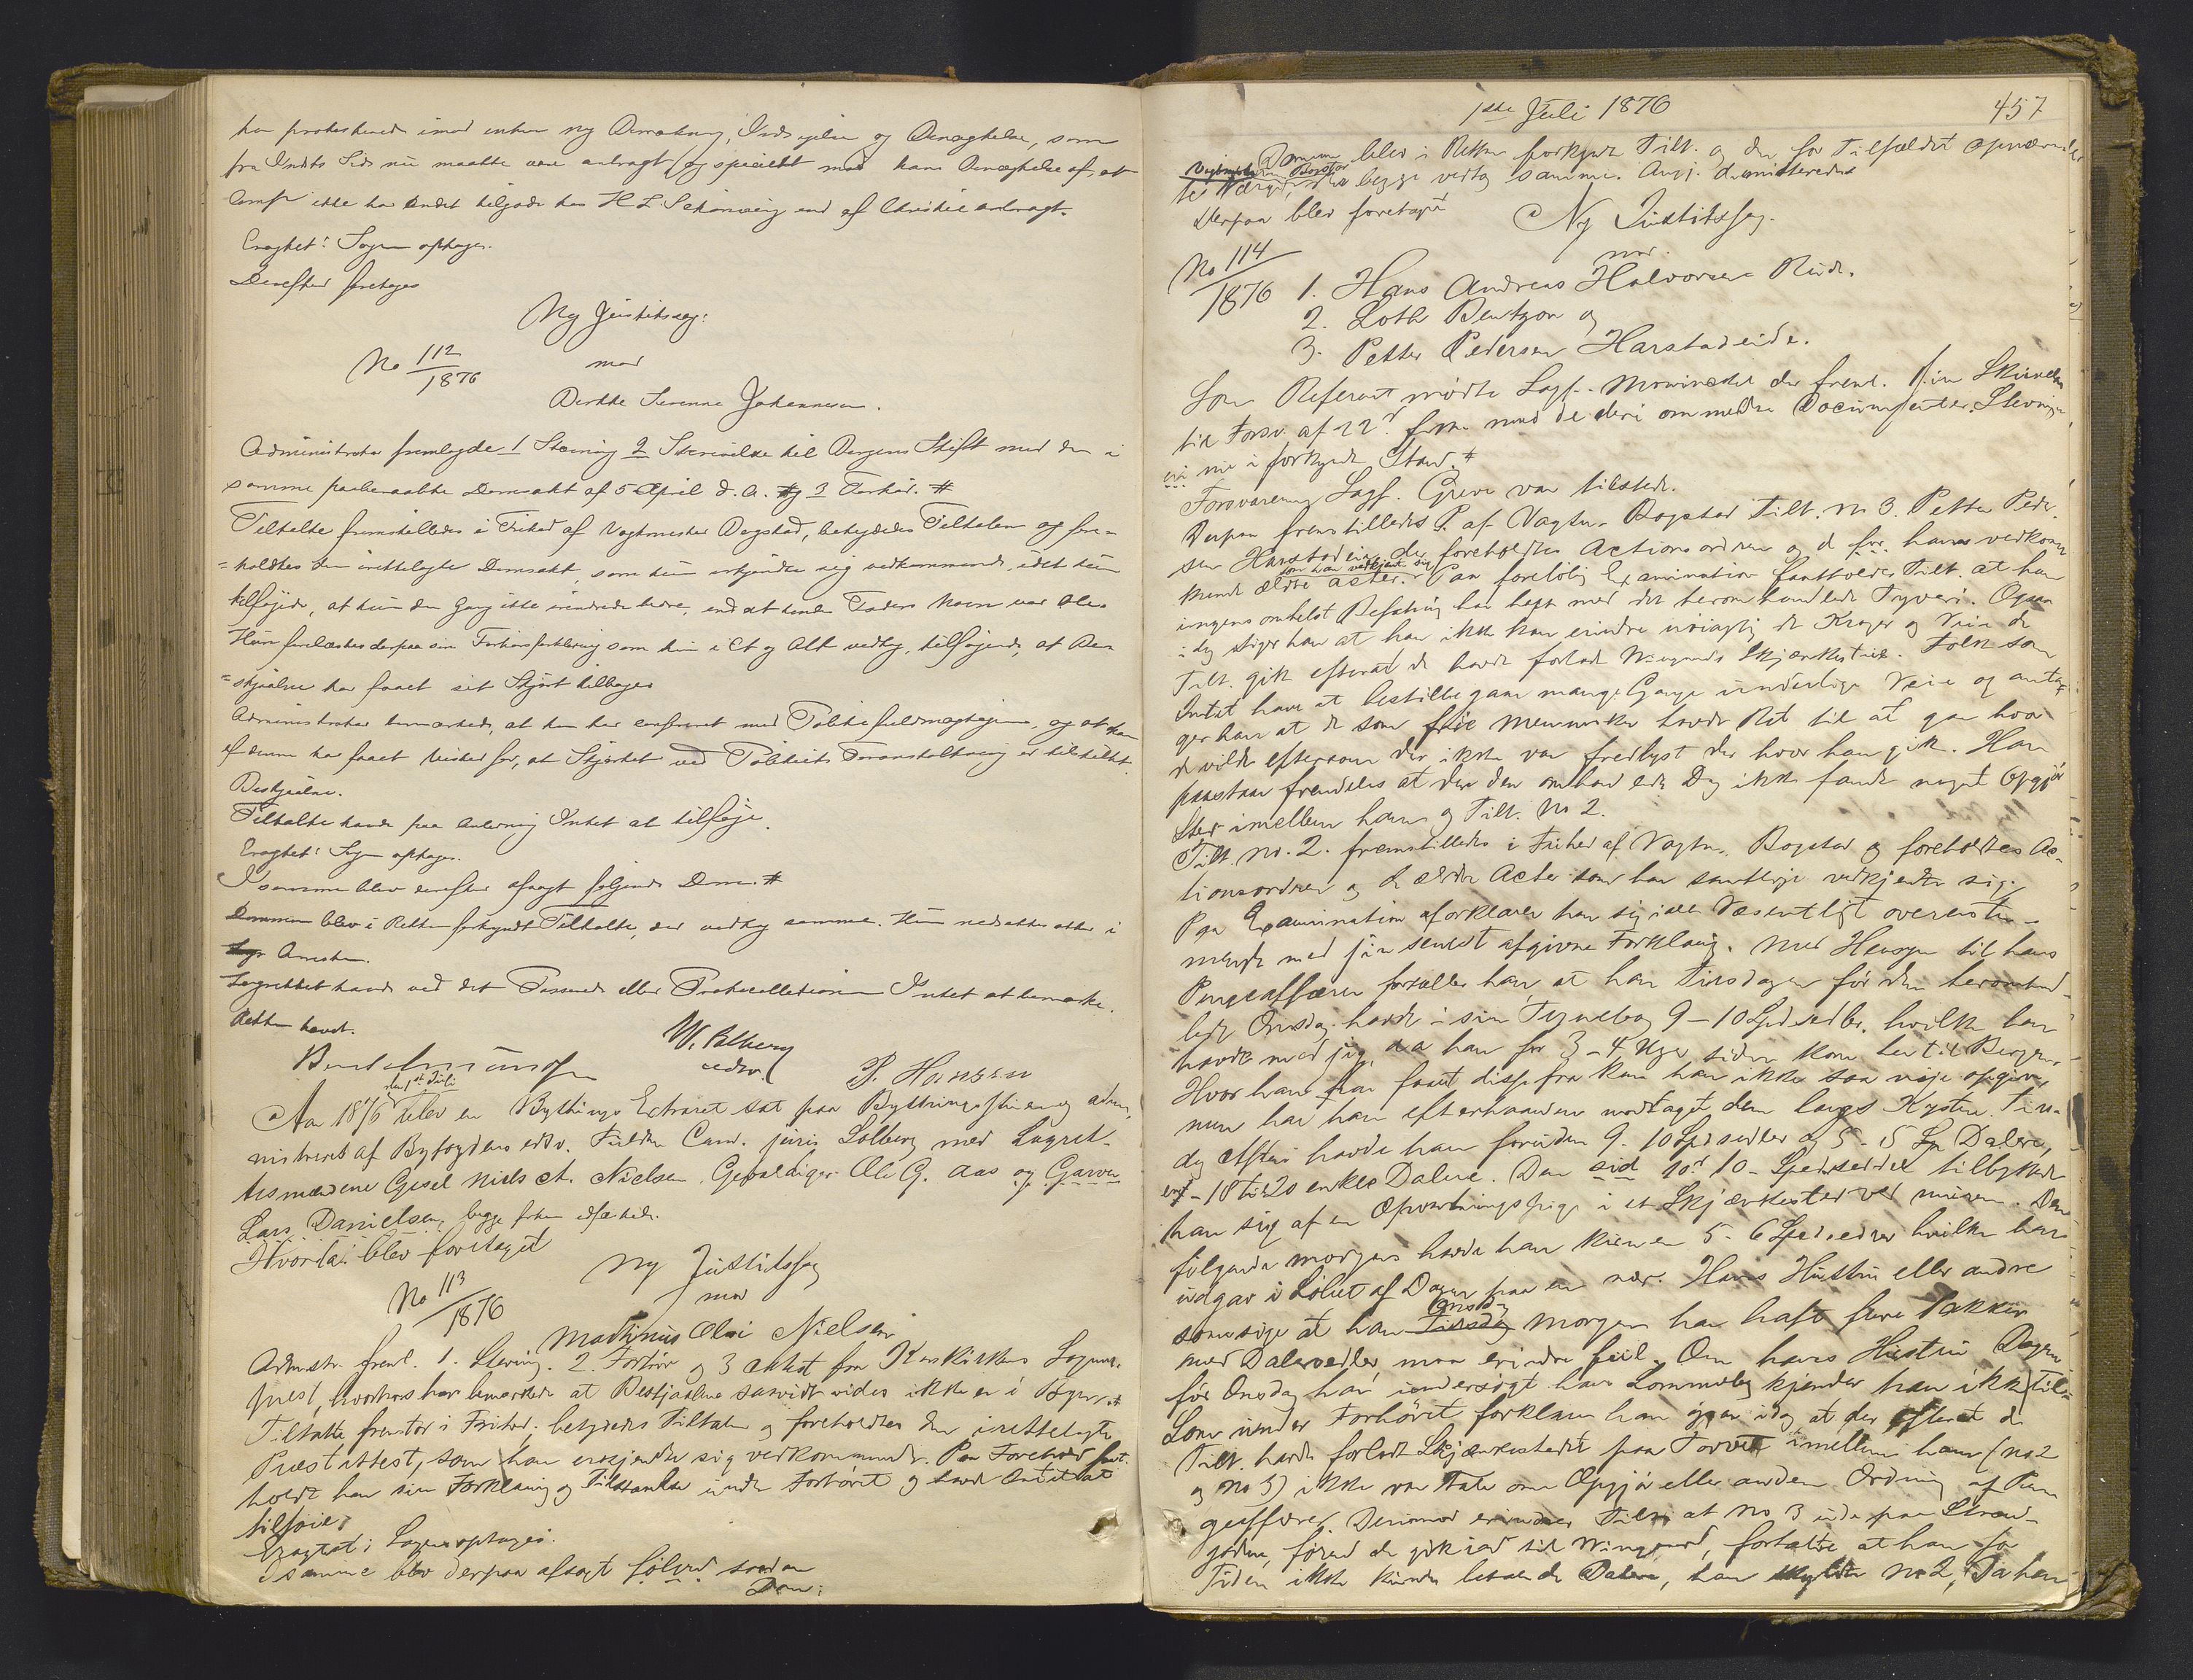 har protesteret imod enhver ny Bemærkning, Indsigelse og Benægtelse, som
fra Indsts Side nu maatte være anbragt og specielt mod hans Benægtelse af, at
ikke har Andet tilgode hos H L. end af Christie anbragt.
Eragtet: Sagen optages.
Derefter foretages
Ny Justitssag:
No 112/1876 mod
Berthe Serine Johannesen.
Administrator fremlagde 1 Stevning 2 Skrivelse til Bergens Stift med den i
samme paaberaabte Domsakt af 5 April d. A. og 3 Forhör. #
Tiltalte fremstilledes i Frihed af Vagtmester Bogstad, betydedes Tiltalen og fore-
=holdtes den irettelagte Domsakt, som hun erkjendte sig vedkommende, idet hun
tilföjede, at hun den Gang ikke erindrede bedre, end at hendes Faders Navn var Ole.
Hun forelæstes derpaa sin Forhörsforklaring som hun i Et og Alt vedtog, tilföjende, at Be-
=stjaalne har faaet sit Skjört tilbage.
Administrator bemærkede, at han har confereret med Politifuldmægtigen, og at han
af denne har faaet Vished for, at Skjörtet ved Politiets Foranstaltning er tilstillet
Bestjaalne.
Tiltalte havde paa Anledning Intet at tilföje.
Eragtet: Sagen optages.
I samme blev derefter afsagt fölgende Dom. #
Dommen blev i Retten forkyndt Tiltalte, der vedtog samme. Hun nedsattes atter i
Arresten.
Lagrettet havde ved det Passerede eller Protocollationen Intet at bemærke.
Retten hævet.
W. Solberg
edsv.
P. Hansen
Aar 1876 den 1ste Juli blev en Bythings Extraret sat paa Bythingsstuen og admi-
nistreret af Byfogdens edsv. Fuldm. Cand. juris Solberg med Lagret-
tesmændene Gjesel Niels A. Nielsen Gevaldiger Ole G. Aas og Garver
Lars Danielsen, begge forhen edfæstede.
Hvorda blev foretaget
Ny Justitssag
No 113/1876 mod
Mathinus Olai Nielsen
Admstr. freml. 1. Stevning. 2. Forhör og 3 Attest fra Korskirkens Sogne-
prest, hvorhos han bemærkede at Bestjaalne saavidt vides ikke er i Byen. #
Tiltalte fremstod i Frihed; betydedes Tiltalen og foreholdtes den irettelagte
Præstattest, som han erkjendte sig vedkommende. Paa Forehold fast-
holdt han sin Forklaring og Tilstaaelse under Forhöret og havde Intet at
tilföie.
Eragtet: Sagen optages.
I samme blev derpaa afsagt fölgende saadan
Dom:
1ste Juli 1876 457
Dommen blev i Retten forkyndt Tilt. og den for Tilfældet opnævn-
te Værge, Vagtmester Bogstad, der begge vedtog samme. Angj. dimitteredes
Derpaa blev foretaget
Ny Justitssag.
No 114/1876 mod
1. Hans Andreas Halvorsen Rud.
2. Loth Bentzon og
3. Petter Pedersen Harstadeide.
Som Referent mödte Sagf. Morwinckel der freml. sin Skrivelse
til Forsv. af 22de f. M. med de deri ommeldte Documenter. Stevningen
nu i forkyndt Stand. #
Forsvareren Sagf. Greve var tilstede.
Derpaa fremstilledes P. af Vagtm. Bogstad Tilt. No 3. Petter Peder-
sen Harstadeide, der foreholdtes Actionsordren og de for hans vedkom-
mende ældre Acter, som han vedkjendte sig. Paa forelöbig Examination fastholder Tilt. at han
ingensomhelst Befatning har havt med det heromhandlede Tyveri. Ogsaa
idag siger han at han ikke kan erindre nöiagtig de Kroger og Veie de
Tilt. gik efterat de havde forladt Wingaards Skjænkested. Folk som
Intet have at bestille gaar mange Gange underlige Veie og anta-
ger han at de som frie Mennesker havde Ret til at gaa hvor
de vilde eftersom der ikke var fredlyst der hvor han gik. Han
paastaar fremdeles at der den omhandlede Dag ikke fandt noget Opgjör
Sted imellem ham og Tilt. No 2.
Tilt. No. 2. fremstilledes i Frihed af Vagtm. Bogstad og foreholdtes Ac-
tionsordren og de ældre Acter som han samtlige vedkjendte sig.
Paa Examination forklarer han sig i alt Væsentligt overenstem-
mende med sin senest afgivne Forklaring. Med Hensyn til hans
Pengeaffærer fortæller han, at han Tirsdagen för den heromhand-
lede Onsdag havde i sin Tegnebog 9 – 10 Spd.sedler, hvilke han
havde med sig, da han for 3-4 Uger siden kom her til Bergen.
Hvor han har faaet disse fra kan han ikke saa nöje opgive
men har han efterhaanden modtaget dem langs Kysten. Tirs-
dag Aften havde han foruden 9-10 Spdsedler og 5-5 Sp Dalere,
10 til 20 enkle Dalere. Den sid 10. 10-Spedseddel tilbyttede
han sig af en Opvartningspige i et Skjænkested ved Muren. Den
fölgende morgen havde han kun en 5-6 Spdsedler hvilke han
udgav i Löbet af Dagen paa en nær. Hans Hustru eller andre
som sige at han Tirsdag Onsdag Morgen har haft flere Pakker
med Dalersedler maa erindre feil. Om hans Hustru Dagen
för Onsdag har undersögt hans Lommebog kjender han ikke til.
Som under Forhöret forklarer han ogsaa idag at der efterat de
Tilt. havde forladt Skjænkestedet paa Torvet imellem ham (No 2
og No 3) ikke var Tale om Opgjör eller anden Ordning af Pen-
geaffærer. Derimod erindrer Tilt. at No 3 ude paa Strand-
gaden, förend de gik ind til Wingaard, fortalte at han for
Tiden ikke kunde betale de Dalere, han skyldte No 2, Da han